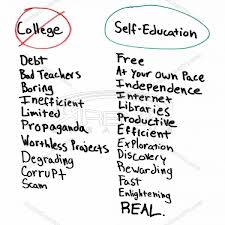 College
Debt
Bad Teachers
Boring
Inefficient
Limited
Propaganda
Worthless Projects
Degrading
Corrupt
Scam
Self-Education
Free
At Your Own Pace
Independence
Internet
Libraries
Productive
Efficient
Exploration
Discovery
Rewarding
Fast
Enlightening
REAL.